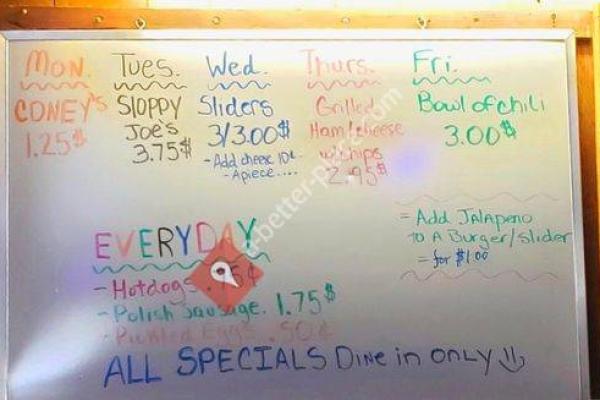 Mon.
CONEY'S
1.25$
Tues.
SLOPPY
Joe's
3.75$
Wed.
Sliders
3/3.00$
- Add cheese 10¢
- Apiece....
Thurs.
Grilled
Ham/cheese
w/chips
2.95$
Fri.
Bowl of chili
3.00$
= Add Jalapeno
To A Burger/Slider
= for $1.00
EVERYDAY
- Hotdogs .75¢
- Polish Sausage. 1.75$
- Pickled Eggs .50¢
ALL SPECIALS Dine in ONLY